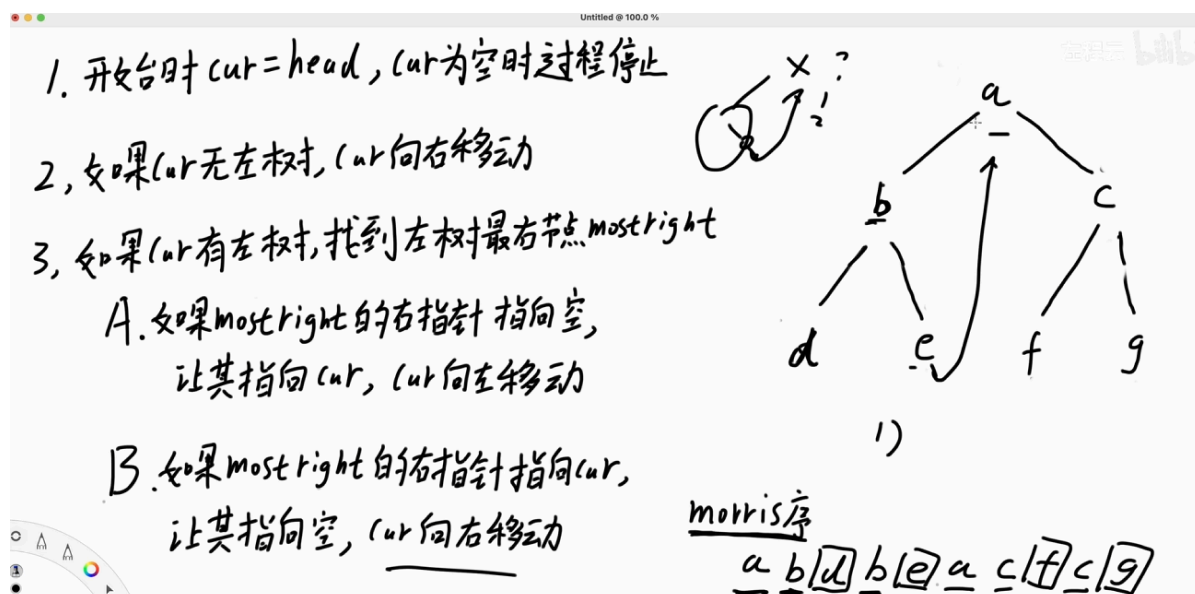 Untitled @ 100.0 %
1. 开始时cur=head, cur为空时过程停止
2, 如果cur无左树, cur向右移动
3, 如果cur有左树, 找到左树最右节点mostright
A. 如果mostright的右指针指向空,
让其指向cur, cur向左移动
B. 如果mostright的右指针指向cur,
让其指向空, cur向右移动
X ?
1
2
a
b c
d e f g
1)
morris序
a b d b e a c f c g